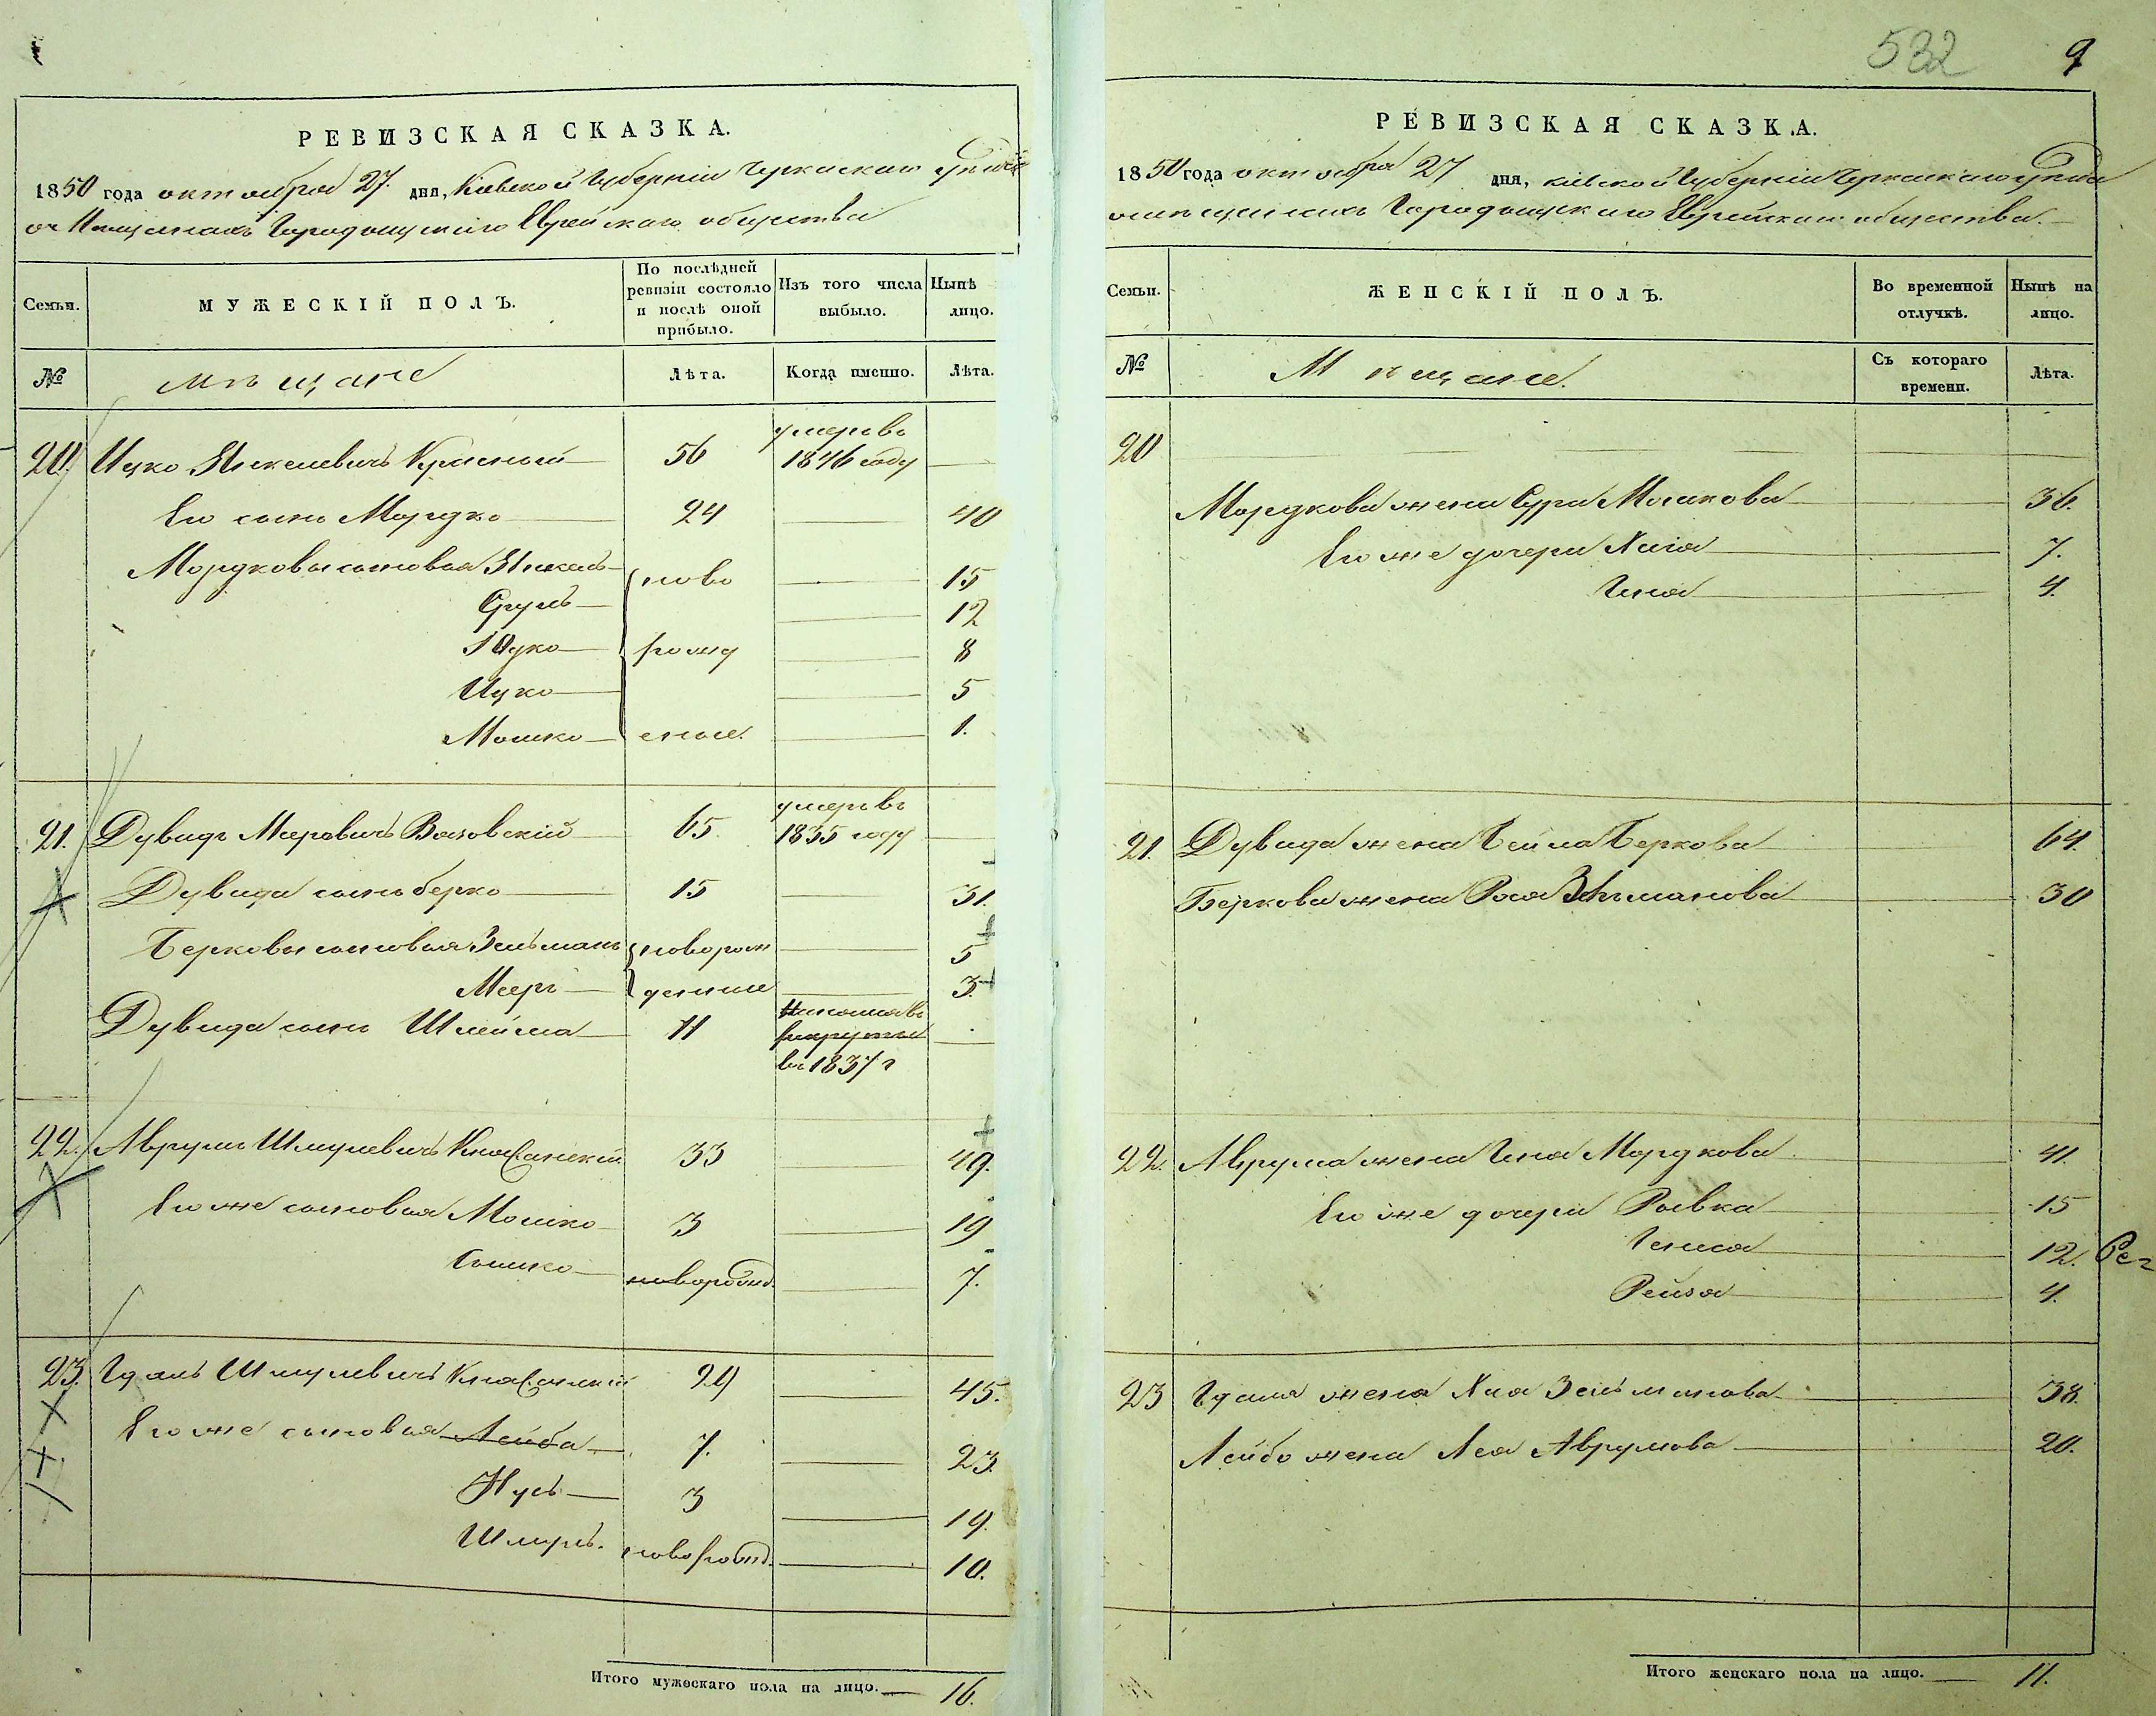 532 9
РЕВИЗСКАЯ СКАЗКА.
1850 года октября 27. дня, Кіевской Губерніи Черкаскаго уѣзда
о Мѣщанахъ Городищскаго Еврейскаго общества
Семьи.
МУЖЕСКІЙ ПОЛЪ.
По послѣдней ревизіи состояло и послѣ оной прибыло.
Изъ того числа выбыло.
Нынѣ лицо.
№
мѣщане
Лѣта.
Когда именно.
Лѣта.
20. Ицко Янкелевичъ 56 умеръ въ 1846 году
Его сынъ Мордко 24 40
Мордковы сыновья Янкель ново 15
Сруль 12
Юдко рожд 8
Ицко 5
Мошко енные. 1.
21. Дувидъ Меровичъ 65. умеръ въ 1835 году
Дувида сынъ берко 15 31.
Берковы сыновья Зельманъ новорож 5
Мееръ денные 3.
Дувида сынъ Шлейма 11 рекруты въ 1837 г
22. Аврумъ Шмулевичъ 33 49.
Его же сыновья Мошко 3 19
новорожд. 7.
23. Идаль Шмулевичъ 29 45.
Его же сыновья Лейба 7. 23.
Нусъ 3 19.
Шмеръ. новорожд. 10.
Итого мужескаго пола на лицо. 16.
РЕВИЗСКАЯ СКАЗКА.
1850 года октября 27 дня, Кіевской Губерніи Черкаскаго уѣзда
о мѣщанахъ Городищскаго Еврейскаго общества.
Семьи.
ЖЕНСКІЙ ПОЛЪ.
Во временной отлучкѣ.
Нынѣ на лицо.
№
Мѣщане.
Съ котораго времени.
Лѣта.
20
Мордкова жена Сура Мошкова 36.
Его же дочери Хая 7.
Геня 4.
21. Дувида жена Бейла Беркова 64.
Беркова жена Рося Зельманова 30
22. Аврума жена Геня Мордкова 41.
Его же дочери Рывка 15
12.
Рейзя 4.
23 Идаля жена Хая Зельманова 38.
Лейбо жена Лея Аврумова 20.
Итого женскаго пола на лицо. 11.